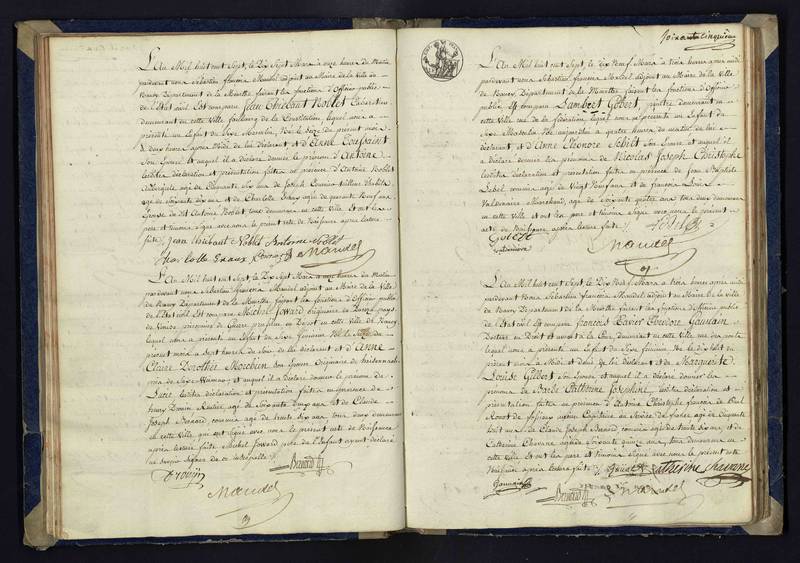 L'An Mil huit cent Sept, le Dix Sept Mars à onze heures du Matin
pardevant nous Sébastien françois Mandel adjoint au Maire de la Ville de
Nancy Département de la Meurthe faisant les fonctions d'Officier public
de l'Etat civil Est comparu Jean Thiebaut Noblet
demeurant en cette Ville faubourg de la Constitution, lequel nous a
présenté un Enfant du Sexe Masculin, Né le Seize du présent mois
à deux heures après Midi de lui déclarant et d'Anne Toussaint
Son Epouse et auquel il a déclaré donner le prénom d'Antoine
lesdites déclaration et présentation faites en présence d'Antoine Noblet
Aubergiste agé de Cinquante Six ans de Joseph
agé de Soixante dix ans et de Charlotte agée de quarante Neuf ans
Epouse de dit Antoine Noblet tous demeurant en cette Ville Et ont les
père et témoins Signé avec nous le présent acte de Naissance après lecture
faite Jean thiebaut Noblet Antoine Noblet
Charlotte Mandel
L'An Mil huit cent Sept, le Dix Sept Mars à onze heures du Matin
pardevant nous Sébastien françois Mandel adjoint au Maire de la Ville
de Nancy Département de la Meurthe faisant les fonctions d'Officier public
de l'Etat civil Est comparu Michel Joward
prisonnier de Guerre prussien en Dépôt en cette Ville de Nancy
lequel nous a présenté un Enfant du Sexe féminin Né le Seize du
présent mois à Sept heures du Soir de lui déclarant et d'Anne
Claire Dorothée Son Epouse Originaire de
et auquel il a déclaré donner le prénom de
lesdites déclaration et présentation faites en présence de
henry Drouin agé de Soixante ans et de Claude
Joseph Benard commis agé de trente Six ans tous deux demeurant
en cette Ville, qui ont Signé avec nous le présent acte de Naissance
après lecture faite, Michel Joward père de l'Enfant ayant déclaré
ne savoir Signer de ce interpellé
Drouin Benard
Mandel
Soixante cinquième
L'An Mil huit cent Sept, le Dix Neuf Mars à trois heures après midi
pardevant nous Sébastien françois Mandel adjoint au Maire de la Ville
de Nancy, Département de la Meurthe faisant les fonctions d'Officier
public Est comparu Lambert Gobert, peintre demeurant en
cette Ville rue de la fédération, lequel nous a présenté un Enfant du
Sexe Masculin Né aujourd'hui à quatre heures du matin de lui
déclarant et d'Anne Eléonore Schilt Son Epouse et auquel il
a déclaré donner les prénoms de Nicolas Joseph Christophe
lesdites déclaration et présentation faites en présence de Jean Baptiste
Lebel commis agé de Vingt Neuf ans et de françois Louis
Valdenaire Marchand, agé de Soixante quatre ans tous deux demeurant
en cette Ville, Et ont les père et témoins Signé avec nous le présent
acte de Naissance après lecture faite Lebel
Gobert
Valdenaire Mandel
L'An Mil huit cent Sept, le Dix Neuf Mars à trois heures après midi
pardevant Nous Sébastien françois Mandel adjoint au Maire de la Ville
de Nancy Département de la Meurthe faisant les fonctions d'Officier public
de l'Etat civil Est comparu François Xavier Théodore Gauvain
Docteur en Droit et avocat à la Cour, demeurant en cette Ville
lequel nous a présenté un Enfant du Sexe féminin Né le Dix huit du
présent mois à Midi de lui déclarant et de Marguerite
Louise Gilbert Son Epouse et auquel il a déclaré donner les
prénoms de Barbe Catherine Josephine, lesdites déclaration et
présentation faites en présence d'Antoine Christophe françois de Paul
ancien Capitaine au Service de france agé de Cinquante
huit ans de Claude Joseph Benard commis agé de trente Six ans, et de
Catherine Chavane agée de Soixante quinze ans, tous demeurant en
cette Ville Et ont les père et témoins Signé avec nous le présent acte
de Naissance après lecture faite Catherine Chavane
Gauvain
Benard Mandel